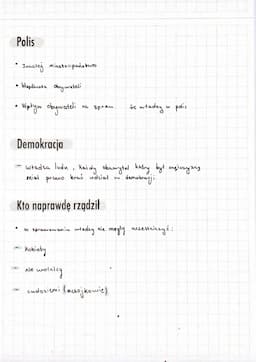 Polis
• Inaczej miasto-państwo
• Wspólnota obywateli
• Wpływ obywateli na spraw władzy w polis
Demokracja
– władza ludu, każdy obywatel który był mężczyzną
miał prawo brać udział w demokracji
Kto naprawdę rządził
• w sprawowaniu władzy nie mogły uczestniczyć:
– kobiety
– niewolnicy
– cudzoziemi (metojkowie)